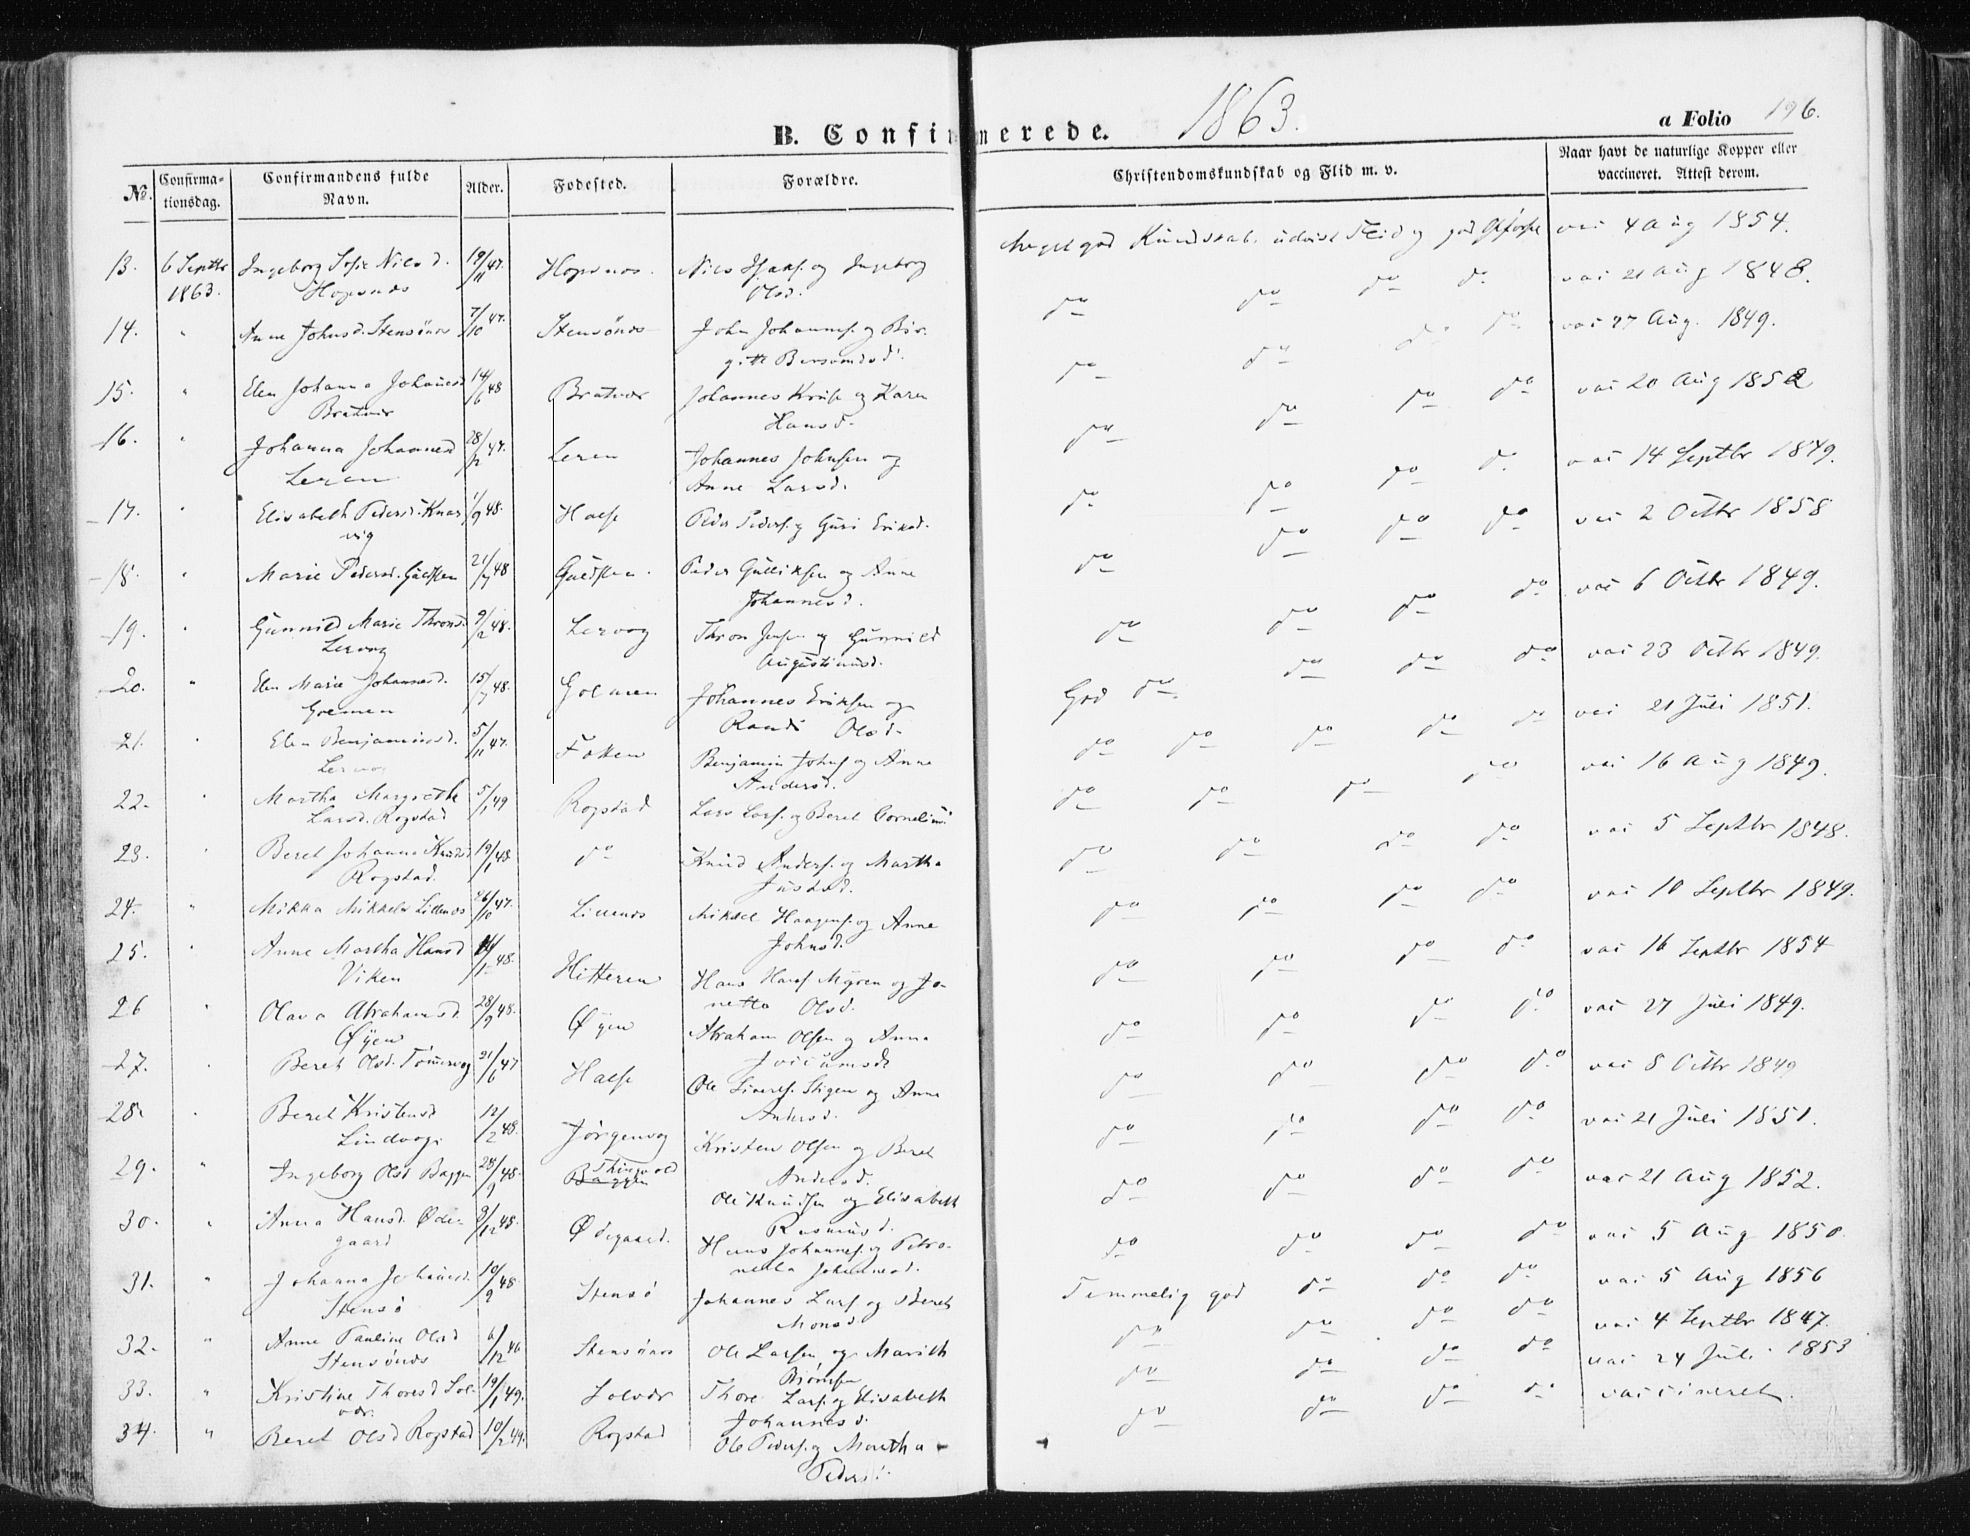 B. Confirmerede. 1863. a Folio 196.
No. Confirma-tionsdag. Confirmandens fulde Navn. Alder. Fødested. Forældre. Christendomskundskab og Flid m. v. Naar havt de naturlige Kopper eller vaccineret. Attest derom.
13. 6 Septbr 1863. Ingeborg Sofie Nilsd. Hopsnes 19/11 47. Hopsnes. Nils og Ingeborg Olsd. Meget god Kundskab, udvist Flid og god vac 4 Aug 1854.
14. " Anne Johnsd. Stensönes 7/10 47. Stensönes John Johannes. og Bir-gitte do do do do vac 21 Aug 1848.
15. " Elen Johanna Johannesd Bratvær 14/6 48 Bratvær Johannes og Karen Hansd. do do do do vac 27 Aug. 1849.
16. " Johanna Johannesd Leren 28/12 47. Leren Johannes Johnsen og Anne Larsd. do do do do vac 20 Aug 1852
17. " Elisabeth Pedersd. Knarvig 1/9 48. Halse Peder Peders. og Guri Eriksd. do do do do vac 14 Septbr 1849.
18. " Marie Pedersd. 21/7 48 Peder Gulliksen og Anne Johannesd. do do do do vac 2 Octbr 1858
19. " Gunnild Marie Thronsd. Lervog 9/2 48. Lervog Thron og Gunnild Augustinusd. do do do do vac 6 Octbr 1849.
20. " Elen Marie Johannesd. Golmen 15/7 48. Golmen Johannes Eriksen og Randi Olsd. God do. do do do vac 23 Octbr 1849.
21. " Elen Benjaminsd. Lervog 5/11 47. Foken Benjamin Johns. og Anne Andersd. do do do do do vac 21 Juli 1851.
22. " Martha Margrethe Larsd. Rogstad 5/1 49 Rogstad Lars Lars. og Beret Cornelius. do do do do vac 16 Aug 1849.
23. " Beret Johanna Knudsd Rogstad. 19/1 48 do Knud Anders. og Martha Justsd. do do do do vac 5 Septbr 1848.
24. " Mikka Mikkelsd Lillenes 26/10 47. Lillenes Mikkel Haagens. og Anne Johnsd. do do do do vac 10 Septbr 1849.
25. " Anne Martha Hansd Viken 48. Hitteren Hans Hans. Myren og Jo-netta Olsd. do do do do vac 16 Septbr 1854
26 " Olava Abrahamsd. Øyen 28/9 48. Øyen Abraham Olsen og Anna do do do do vac 27 Juli 1849.
27. " Beret Olsd. Tömmervog 21/6 47 Halse Ole Sivers. Stigen og Anne Andersd. do do do do vac 8 Octbr 1849
28. " Beret Kristensd Lindvog. 12/2 48. Jörgenvog Kristen Olsen og Beret Andersd. do do do do vac 21 Juli 1851.
29. " Ingeborg Olsd Baggen 28/9 48. Baggen Thingvold Ole Knudsen og Elisabeth Rasmusd. do do do do vac 21 Aug 1852.
30. " Anna Hansd. Øde-gaard 9/12 48. Ødegaard. Hans Johannes. og Petro-nella Johannesd. do do do do vac 5 Aug 1850.
31. " Johanna Johannesd. Stensö 10/2 48. Stensö Johannes Lars. og Beret Monsd. Temmelig god do do do vac 5 Aug 1856
32. " Anne Pauline Olsd Stensönes 6/12 46 Stensönes Ole Larsen og Marith do do do do vac 4 Septbr 1847.
33. " Kristine Thoresd Sol-vær. 19/1 49. Solvær Thore Lars. og Elisabeth Johannesd. do do do do vac 24 Juli 1853
34. " Beret Olsd Rogstad 10/2 49. Rogstad Ole Peders. og Martha Pedersd. do do do do vaccineret.